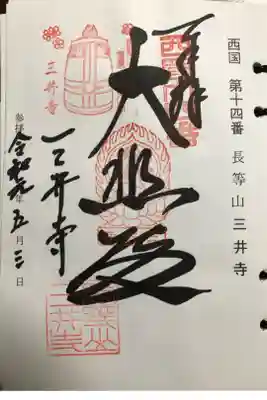 西国 第十四番 長等山 三井寺
奉拝
大悲殿
三井寺
三井寺
参拝 令和元年五月三日